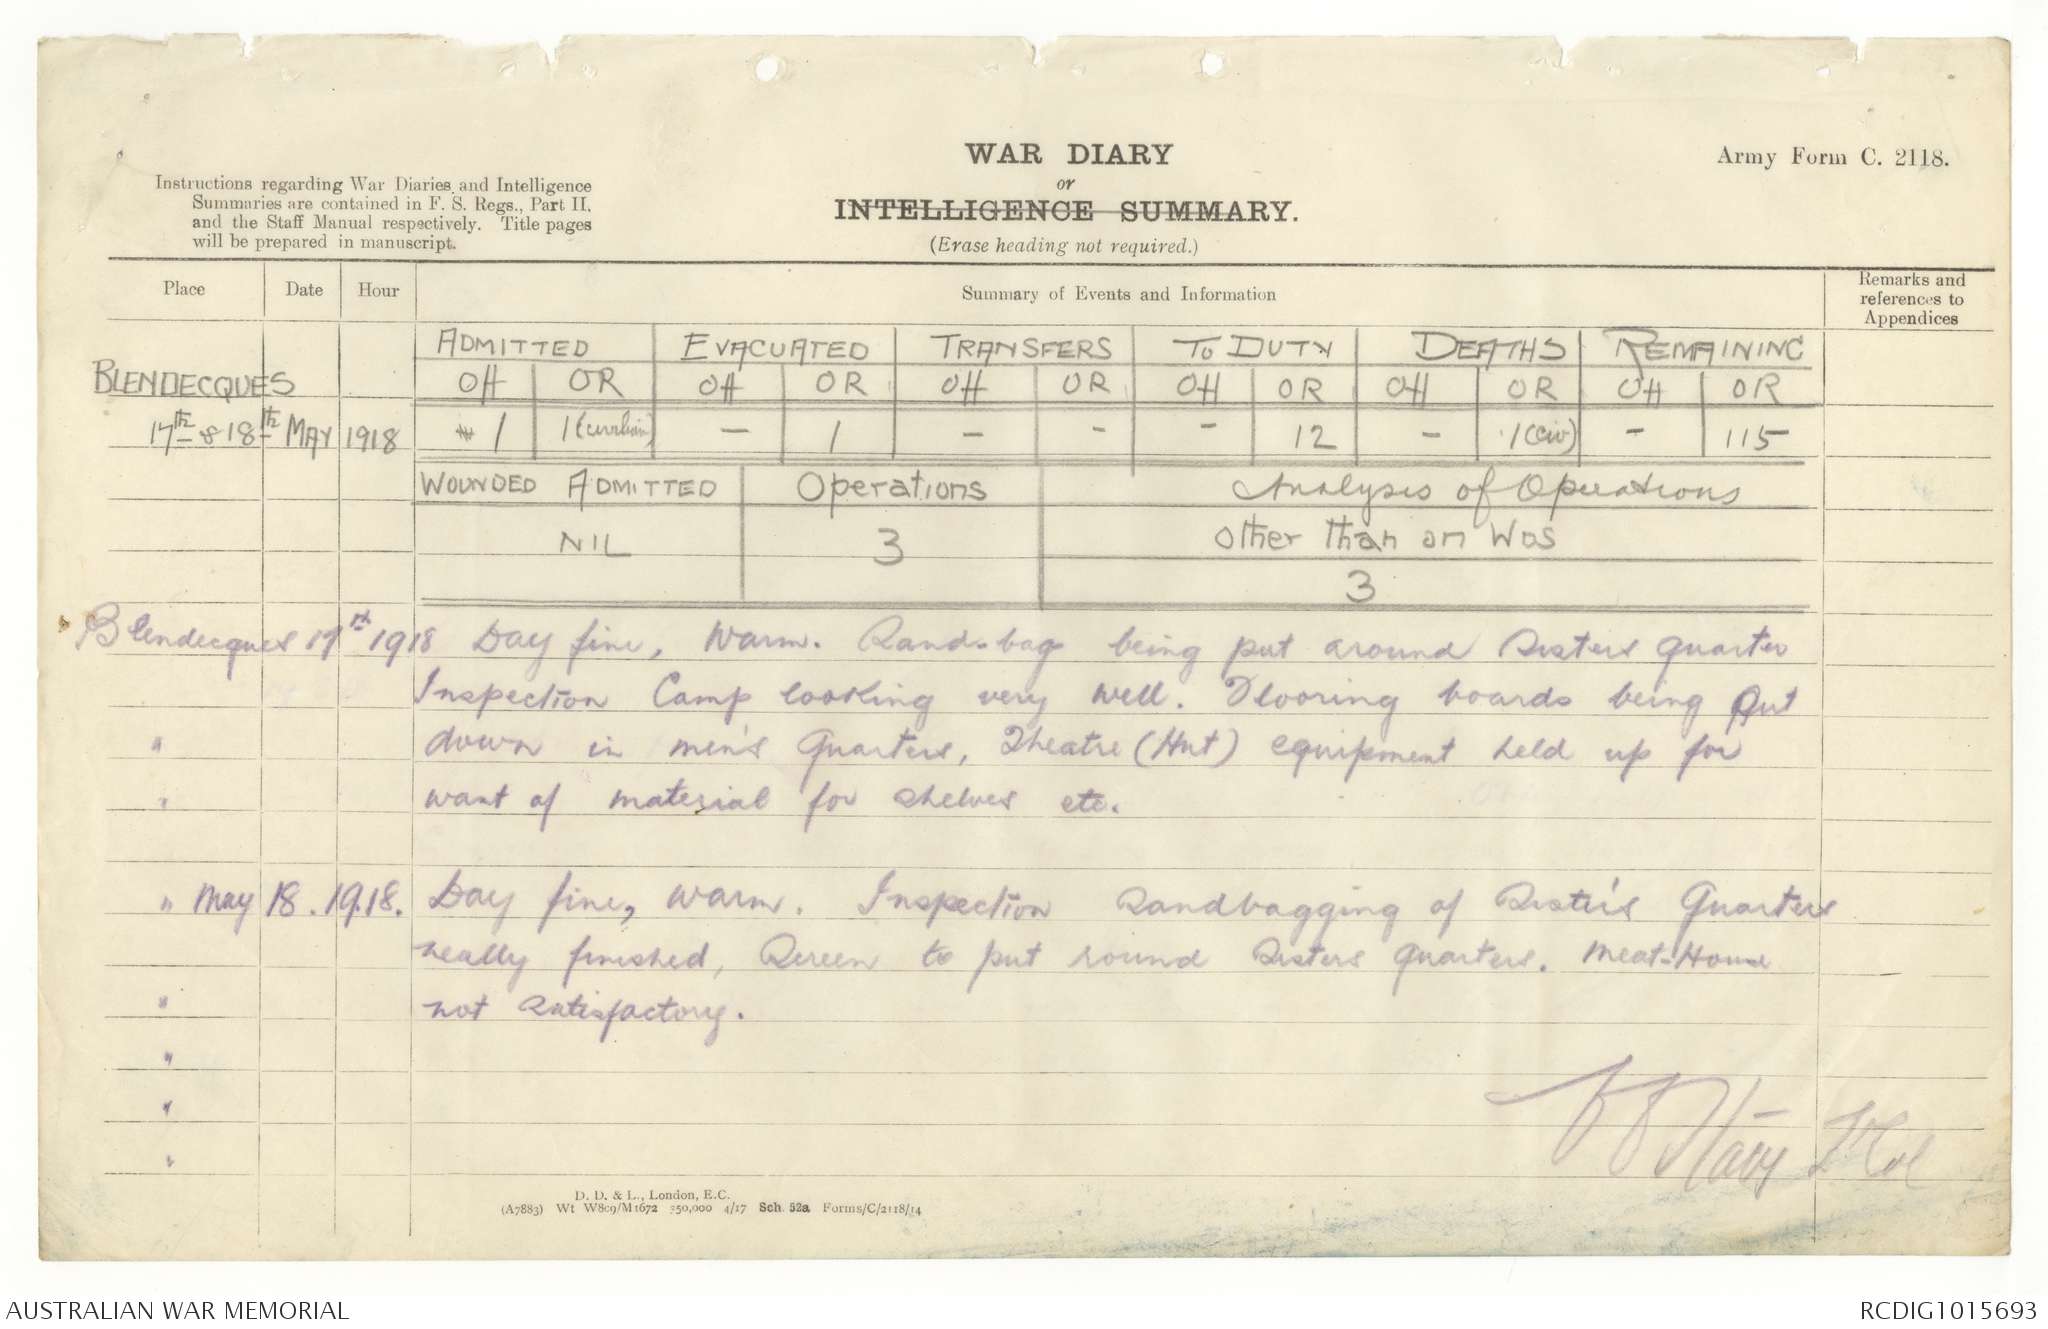 WAR DIARY
or
INTELLIGENCE SUMMARY.
(Erase heading not required.)
Army Form C. 2118.
Instructions regarding War Diaries and Intelligence
Summaries are contained in F. S. Regs., Part II.
and the Staff Manual respectively. Title pages
will be prepared in manuscript.
Place Date Hour Summary of Events and Information Remarks and references to Appendices
ADMITTED EVACUATED TRANSFERS TO DUTY DEATHS REMAINING
BLENDECQUES Off OR Off OR Off OR Off OR Off OR Off OR
17th & 18th MAY 1918 1 1 - 1 - - - 12 - 1 (civ) - 115
WOUNDED ADMITTED Operations Analysis of Operations
NIL 3 Other than on Wds
3
Blendecques 17th 1918 Day fine, warm. Sand-bag being put around Sisters quarter
Inspection Camp looking very well. Flooring boards being put
" down in men's Quarters, Theatre (Hut) equipment held up for
" want of material for shelves etc.
" May 18. 1918. Day fine, warm. Inspection Sandbagging of Sister's Quarters
neally finished, Screen to put round Sisters quarters. Meat-House
" not satisfactory.
"
"
"
D. D. & L., London, E.C.
(A7883) Wt W809/M1672 350,000 4/17 Sch. 52a Forms/C/2118/14
AUSTRALIAN WAR MEMORIAL
RCDIG1015693